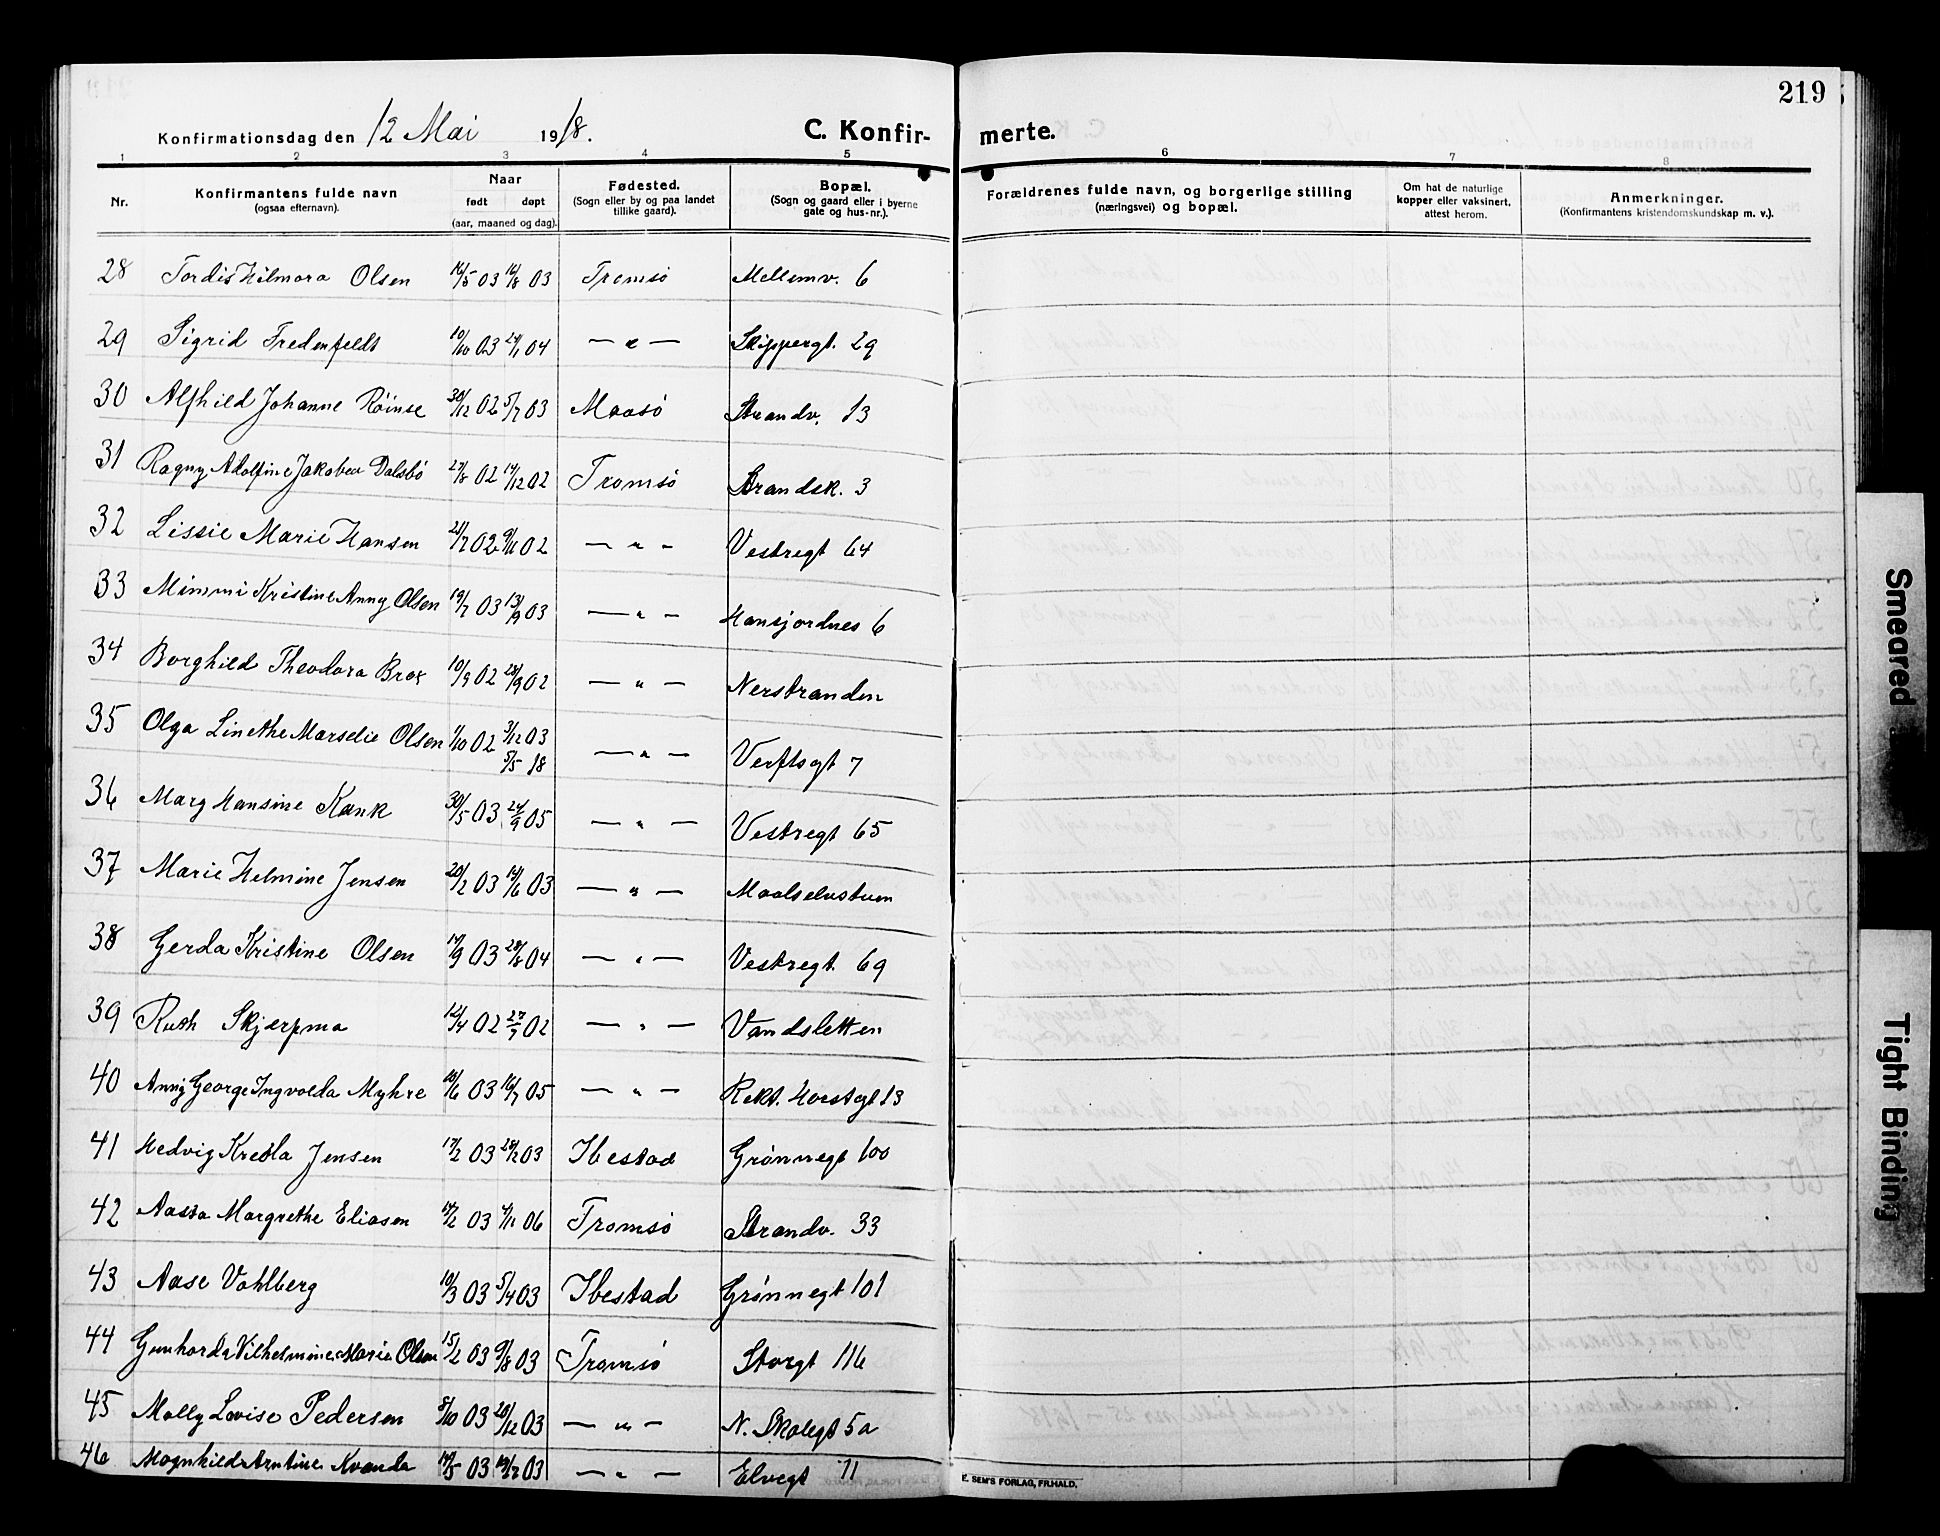 219
Konfirmationsdag den 12 Mai 1918.
C. Konfirmerte.
1 2 3 4 5 6 7 8
Nr.
Konfirmantens fulde navn
(ogsaa efternavn).
Naar
født døpt
(aar, maaned og dag).
Fødested.
(Sogn eller by og paa landet
tillike gaard).
Bopæl.
(Sogn og gaard eller i byerne
gate og hus-nr.).
Forældrenes fulde navn, og borgerlige stilling
(næringsvei) og bopæl.
Om hat de naturlige
kopper eller vaksinert,
attest herom.
Anmerkninger.
(Konfirmantens kristendomskundskap m. v.).
28 Tordis Hilmara Olsen 16/5 03 16/8 03 Tromsø Mellemv. 6
29 Sigrid Fredenfeldt 10/10 03 24/1 04 — " — Skippergt. 29
30 Alfhild Johanne Röinse 30/12 02 5/7 03 Maasö Strandv. 13
31 Ragny Adolfine Jakobea Dalsbö 23/8 02 14/12 02 Tromsö Strandsk. 3
32 Lissie Marie Hansen 21/7 02 9/11 02 — " — Vestregt 64
33 Mimmi Kristine Anny Olsen 19/7 03 13/9 03 — " — Hansjordnes 6
34 Borghild Theodora Brox 10/9 02 28/9 02 — " — Nerstranden
35 Olga Linethe Marselie Olsen 1/10 02 3/12 03 — " — Verftsgt 7
5/5 18
36 Mary Hansine Kank 30/5 03 24/9 05 — " — Vestregt 65
37 Marie Helmine Jensen 20/2 03 14/6 03 — " — Maalselvstuen
38 Gerda Kristine Olsen 17/9 03 28/8 04 — " — Vestregt. 69
39 Ruth Skjerpmo 12/4 02 27/7 02 — " — Vandsletten
40 Anny George Ingvolda Myhre 10/6 03 16/7 05 — " — Rekt. Horstgt 13
41 Hedvig Kresla Jensen 17/2 03 28/2 03 Ibestad Grønnegt 100
42 Aasta Margrethe Eliasen 14/2 03 4/11 06 Tromsö Strandv. 33
43 Aase Vahlberg 10/3 03 5/4 03 Ibestad Grønnegt 101
44 Gunhorda Vilhelmine Marie Olsen 15/2 03 9/8 03 Tromsö Storgt 116
45 Molly Lovise Pedersen 8/10 03 28/12 03 — " — N. Skolegt 5a
46 Magnhild Arntine Kvanda 14/5 03 19/7 03 — " — Elvegt 11
E. SEM'S FORLAG, FR.HALD.
Smeared
Tight Binding